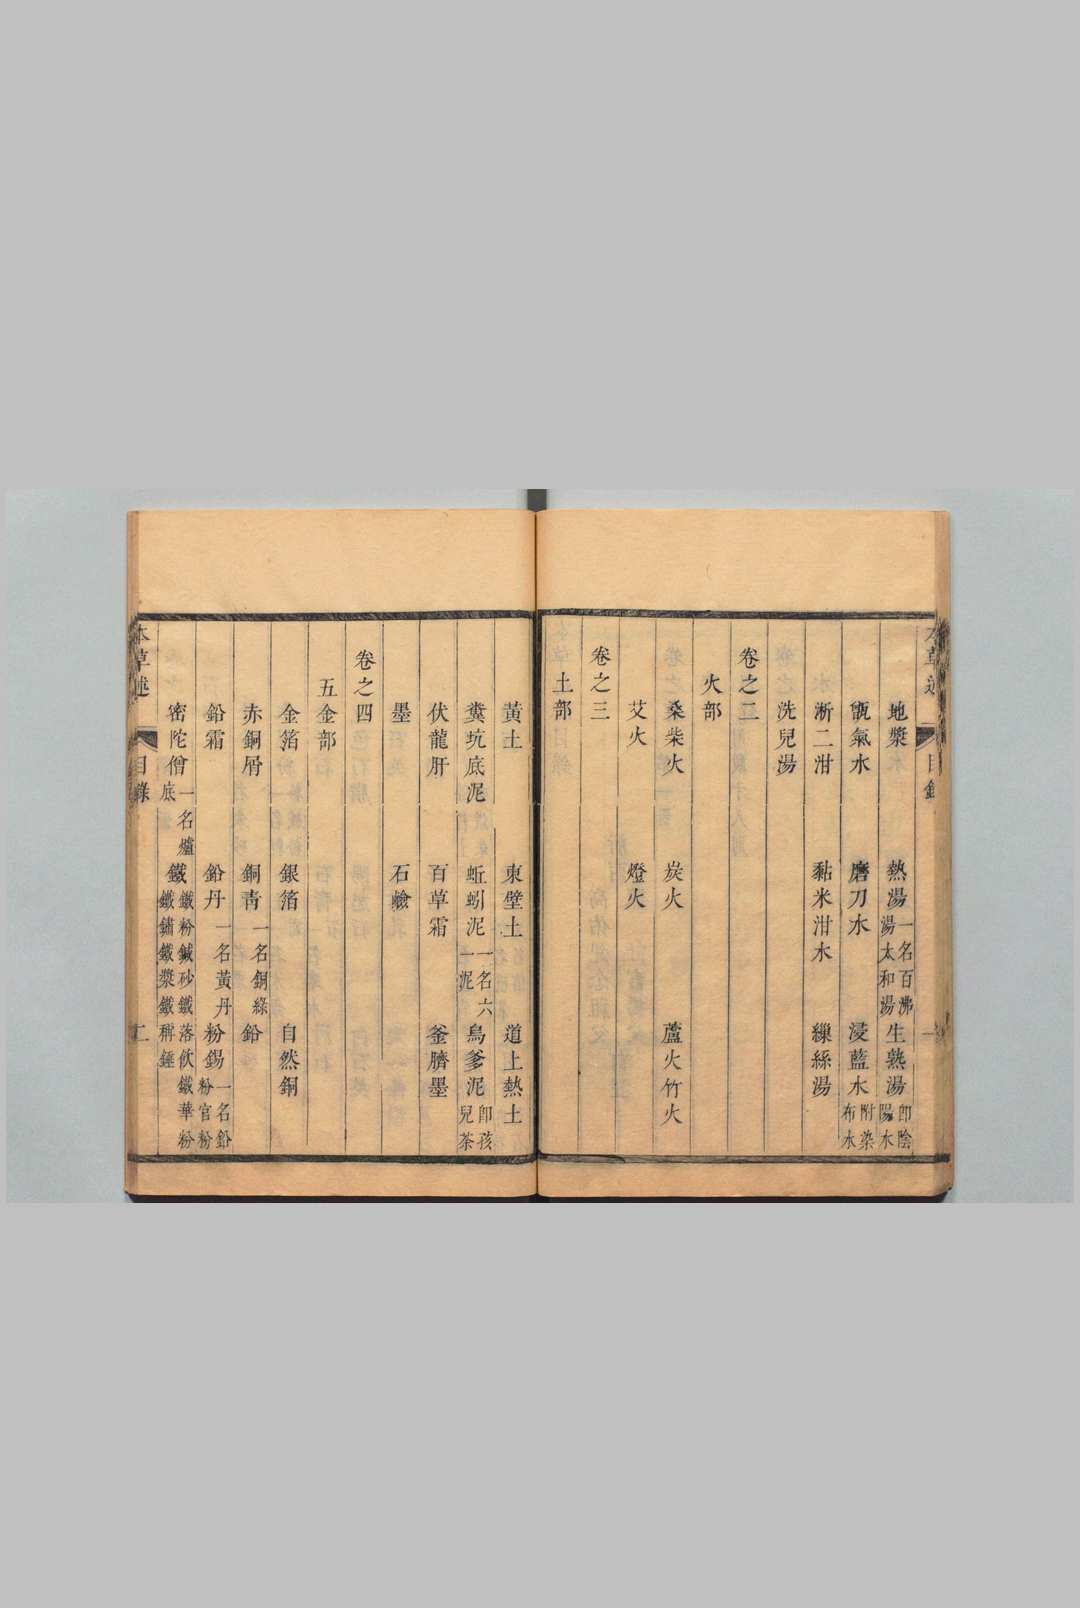 地漿 熱湯 一名百沸湯太和湯 生熟湯 卽陰陽水
甑氣水 磨刀水 浸藍水 附染布水
淅二泔 黏米泔水 繰絲湯
洗兒湯
卷之二
火部
桑柴火 炭火 蘆火竹火
艾火 燈火
卷之三
土部
黃土 東壁土 道上熱土
糞坑底泥 蚯蚓泥 一名六一泥 烏爹泥 卽孩兒茶
伏龍肝 百草霜 釜臍墨
墨 石鹼
卷之四
五金部
金箔 銀箔 自然銅
赤銅屑 銅青 一名銅綠 鉛
鉛霜 鉛丹 一名黃丹 粉錫 一名鉛粉官粉
密陀僧 一名爐底 鐵 鐵粉鍼砂鐵落鐵華粉鐵鏽鐵漿鐵秤錘
本草述 目錄 二